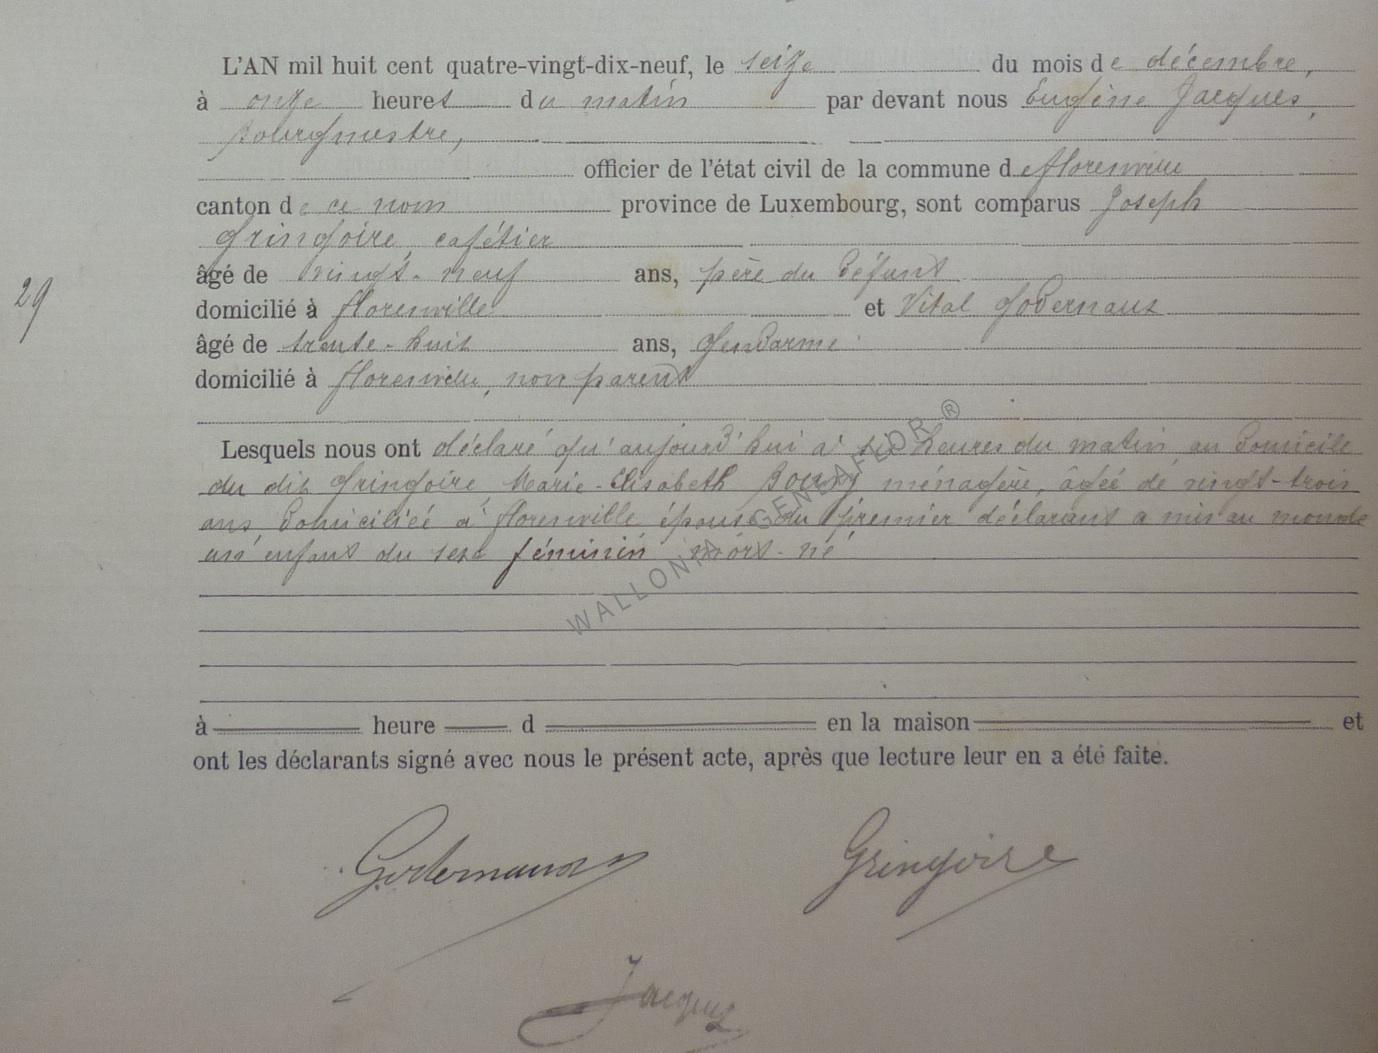 L'AN mil huit cent quatre-vingt-dix-neuf, le seize du mois de décembre,
à onze heures du matin par devant nous Eugène Jacques,
Bourgmestre,
officier de l'état civil de la commune de florenville
canton de ce nom province de Luxembourg, sont comparus Joseph
Gringoire, cafétier
âgé de vingt-neuf ans, père du défunt
29
domicilié à florenville et Vital Godernaux
âgé de trente-huit ans, Gendarme
domicilié à florenville, non parent
Lesquels nous ont déclaré qu'aujourd'hui à heures du matin au domicile
du dit Gringoire, Marie-Elisabeth ménagère, âgée de vingt-trois
ans domiciliée à florenville épouse du premier déclarant a mis au monde
un enfant du sexe féminin mort-né
WALLONIA GENEAFLOR ®
à heure d en la maison et
ont les déclarants signé avec nous le présent acte, après que lecture leur en a été faite.
Godernaux Gringoire
Jacques